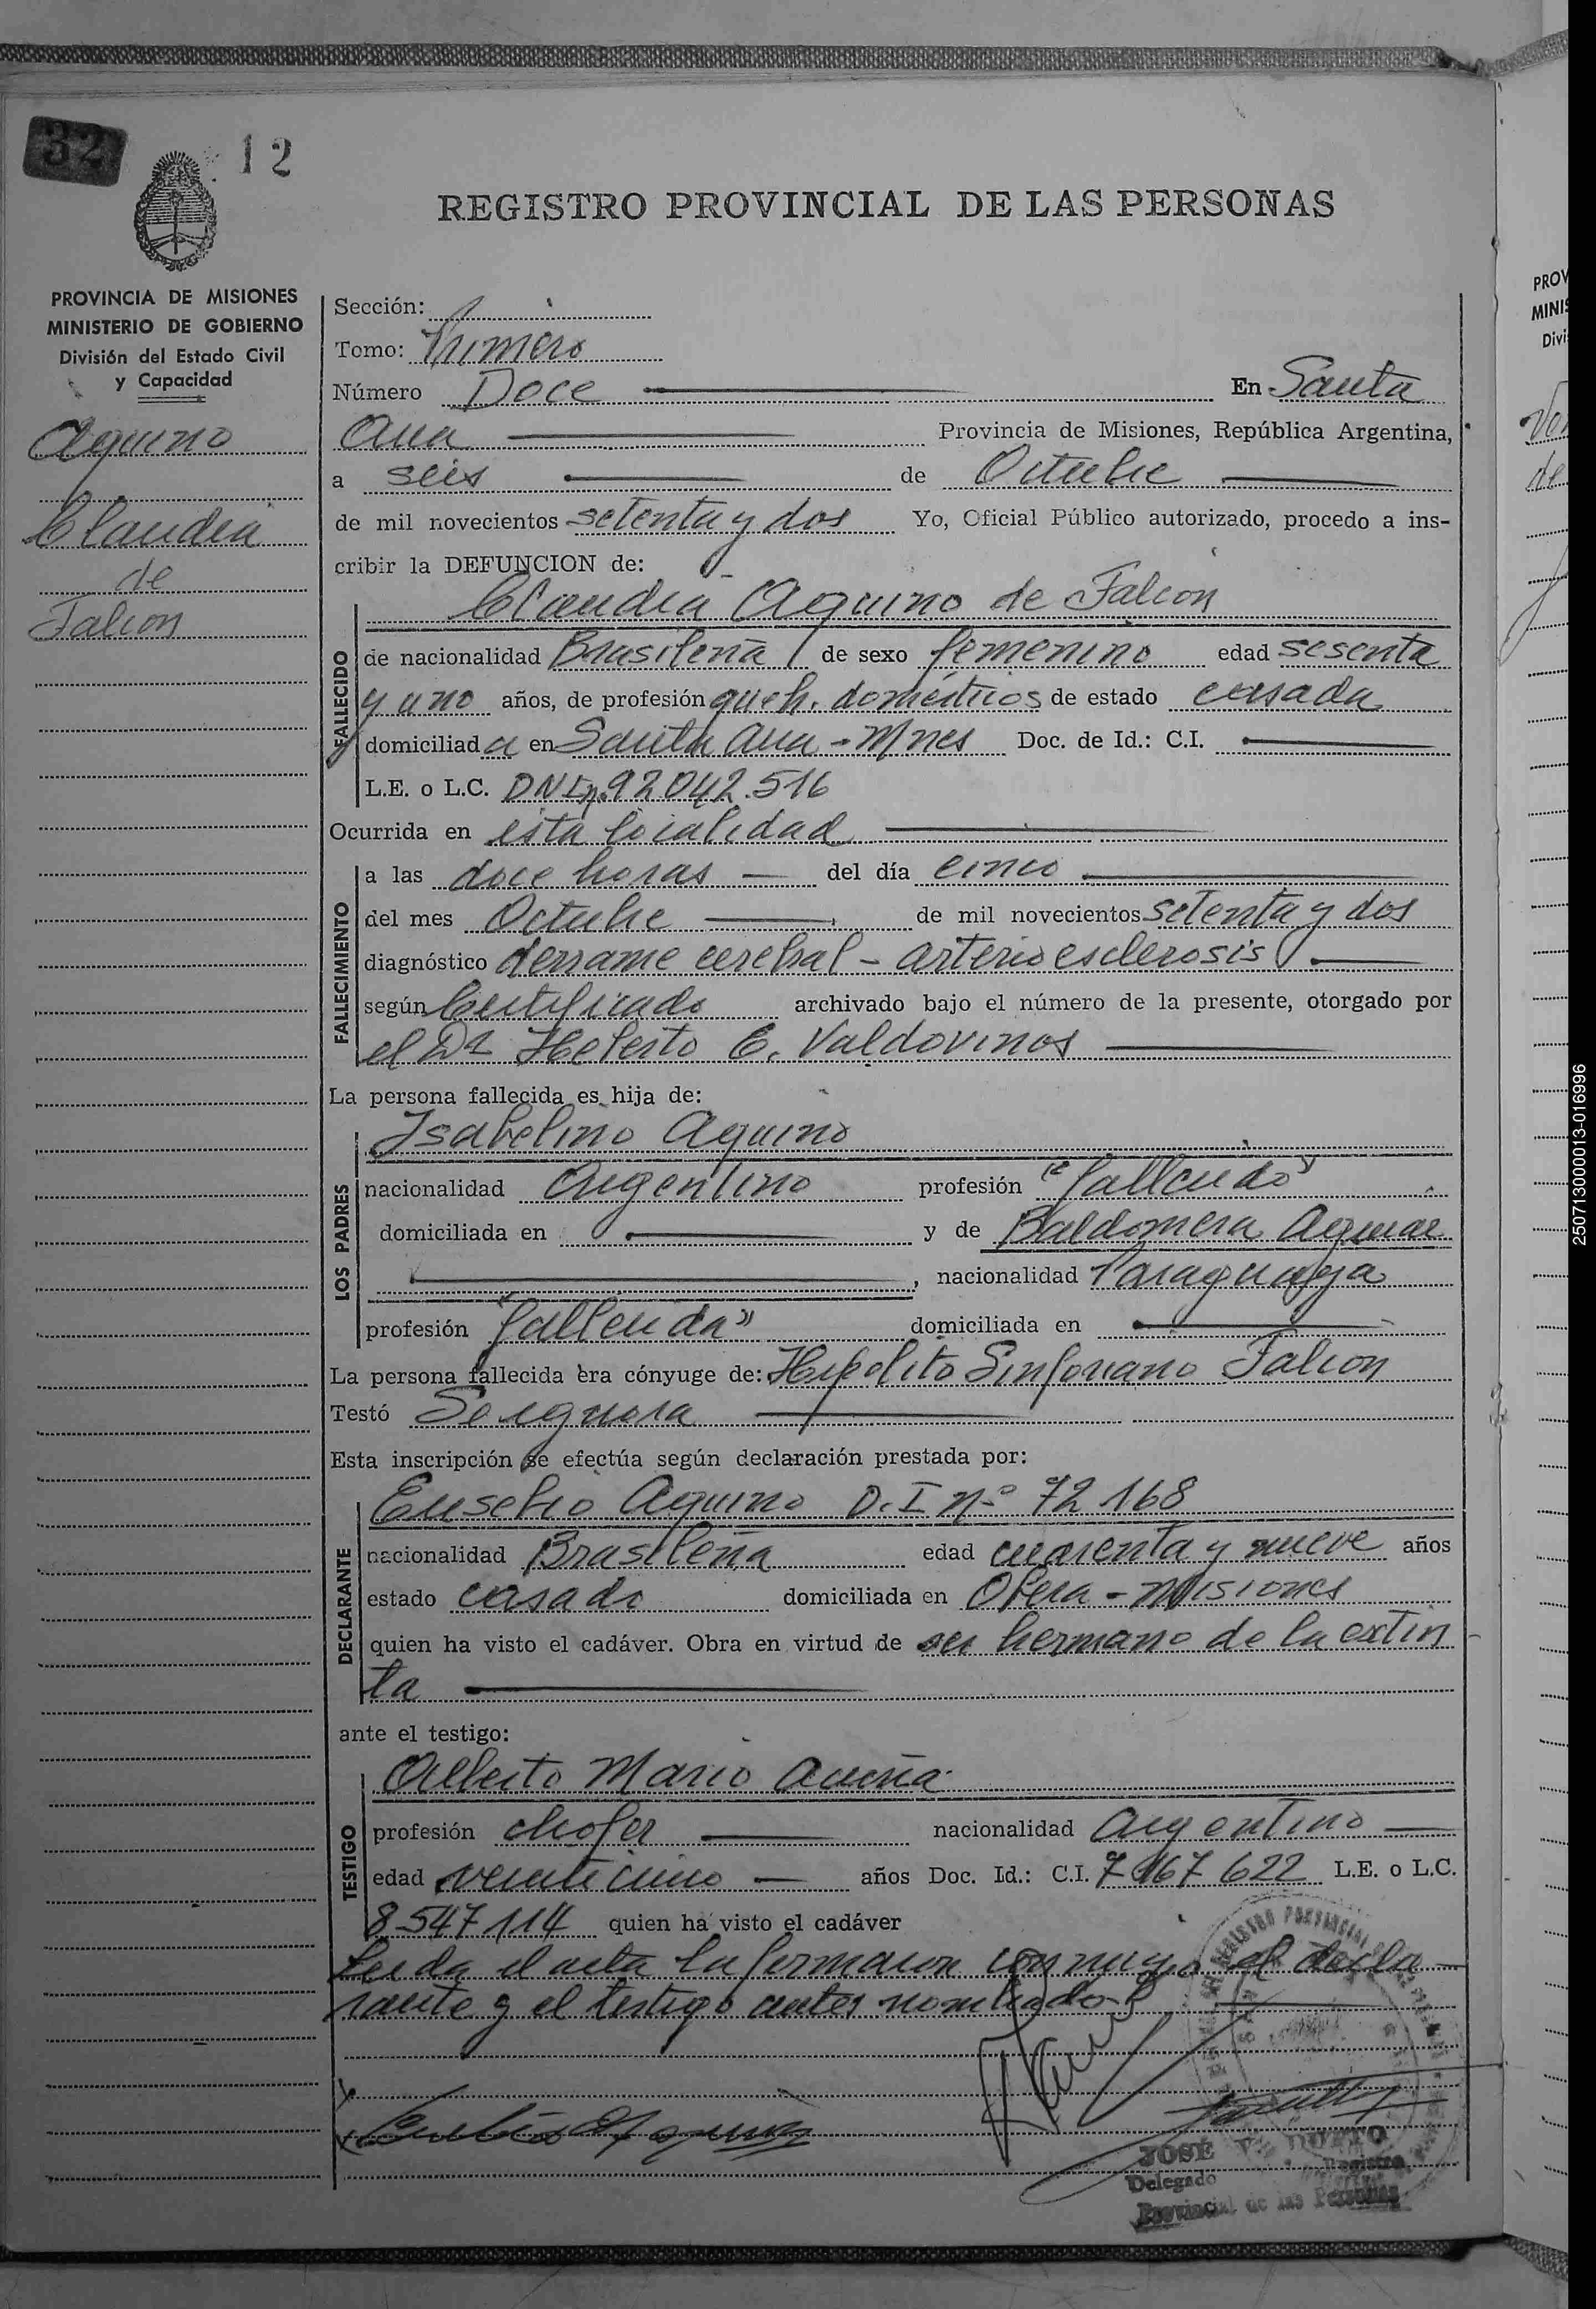 32
12
REGISTRO PROVINCIAL DE LAS PERSONAS
PROVINCIA DE MISIONES
MINISTERIO DE GOBIERNO
División del Estado Civil
y Capacidad
Aquino
Claudia
de
Falcon
Sección: 1
Tomo: Primero
Número Doce En Santa
Ana Provincia de Misiones, República Argentina,
a seis de Octubre
de mil novecientos setenta y dos Yo, Oficial Público autorizado, procedo a ins-
cribir la DEFUNCION de:
Claudia Aquino de Falcon
FALLECIDO
de nacionalidad Brasileña de sexo femenino edad sesenta
y uno años, de profesión queh. domésticos de estado casada
domiciliada en Santa Ana - Mnes Doc. de Id.: C.I.
L.E. o L.C. DNIn. 92.042.516
Ocurrida en esta localidad
FALLECIMIENTO
a las doce horas del día cinco
del mes Octubre de mil novecientos setenta y dos
diagnóstico derrame cerebral - arterioesclerosis
según Certificado archivado bajo el número de la presente, otorgado por
el Dr Heberto E. Valdovinos
La persona fallecida es hija de:
LOS PADRES
Isabelino Aquino
nacionalidad Argentino profesión "fallecido"
domiciliada en y de Baldomera
nacionalidad Paraguaya
profesión "fallecida" domiciliada en
La persona fallecida era cónyuge de: Hipolito Sinforiano Falcon
Testó Se ignora
Esta inscripción se efectúa según declaración prestada por:
DECLARANTE
Eusebio Aquino D.I nº 72.168
nacionalidad Brasileña edad cuarenta y nueve años
estado casado domiciliada en Obera - Misiones
quien ha visto el cadáver. Obra en virtud de ser hermano de la extin
ta
ante el testigo:
TESTIGO
Alberto Mario Acuña
profesión chofer nacionalidad Argentino
edad veinticinco años Doc. Id.: C.I. L.E. o L.C.
8.547.114 quien ha visto el cadáver
Leida el acta la firmaron conmigo el decla
rante y el testigo antes nombrado
Eusebio Aquino
JOSÉ
Delegado Registro
Provincial de las Personas
250713000013-016996
PROV
MINIS
Divi
de